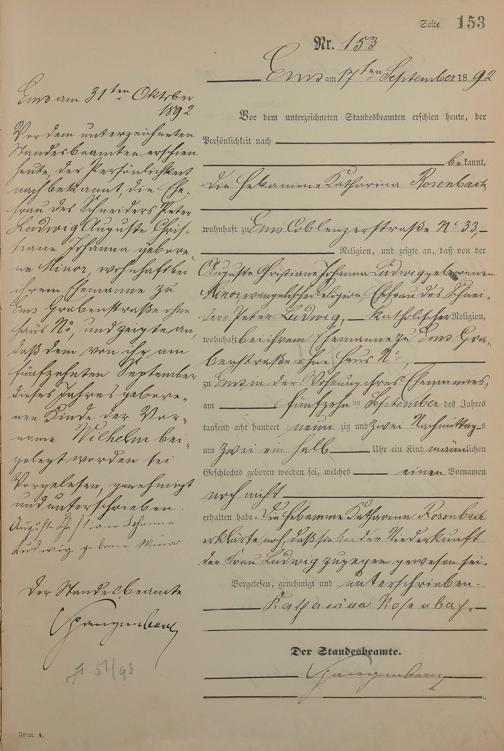 Seite 153
Nr. 153
Ems am 17ten September 1892
Vor dem unterzeichneten Standesbeamten erschien heute, der
Persönlichkeit nach
bekannt,
die Hebamme Katharina Rosenbach
wohnhaft zu Ems Coblenzerstraße No 33
Religion, und zeigte an, daß von der
Auguste Christiane Johanna Ludwig geborenen
Minor, evangelischer Religion, Ehefrau des Schnei-
ders Peter Ludwig, katholischer Religion,
wohnhaft bei ihrem Ehemanne zu Ems Gra-
benstraße ohne Haus No,
zu Ems in der Wohnung ihres Ehemannes,
am fünfzehn ten September des Jahres
tausend acht hundert neun zig und zwei Nachmittags
um zwei ein halb Uhr ein Kind männlichen
Geschlechts geboren worden sei, welches einen Vornamen
noch nicht
erhalten habe. Die Hebamme Katharina Rosenbach
erklärte noch, daß sie bei der Niederkunft
der Frau Ludwig zugegen gewesen sei.
Vorgelesen, genehmigt und unterschrieben
Katharina Rosenbach.
Der Standesbeamte.
Ems am 31ten Oktober
1892
Vor dem unterzeichneten
Standesbeamten erschien
heute, der Persönlichkeit
nach bekannt, die Ehe-
frau des Schneiders Peter
Ludwig, Auguste Chris-
tiane Johanna gebore-
ne Minor, wohnhaft bei
ihrem Ehemanne zu
Ems Grabenstraße ohne
Haus No, und zeigte an,
daß dem von ihr am
fünfzehnten September
dieses Jahres gebore-
nen Kinde der Vor-
name Wilhelm bei-
gelegt worden sei
Vorgelesen, genehmigt
und unterschrieben.
Auguste Christiane Johanne
Ludwig geborne Minor
Der Standesbeamte
Form. A.